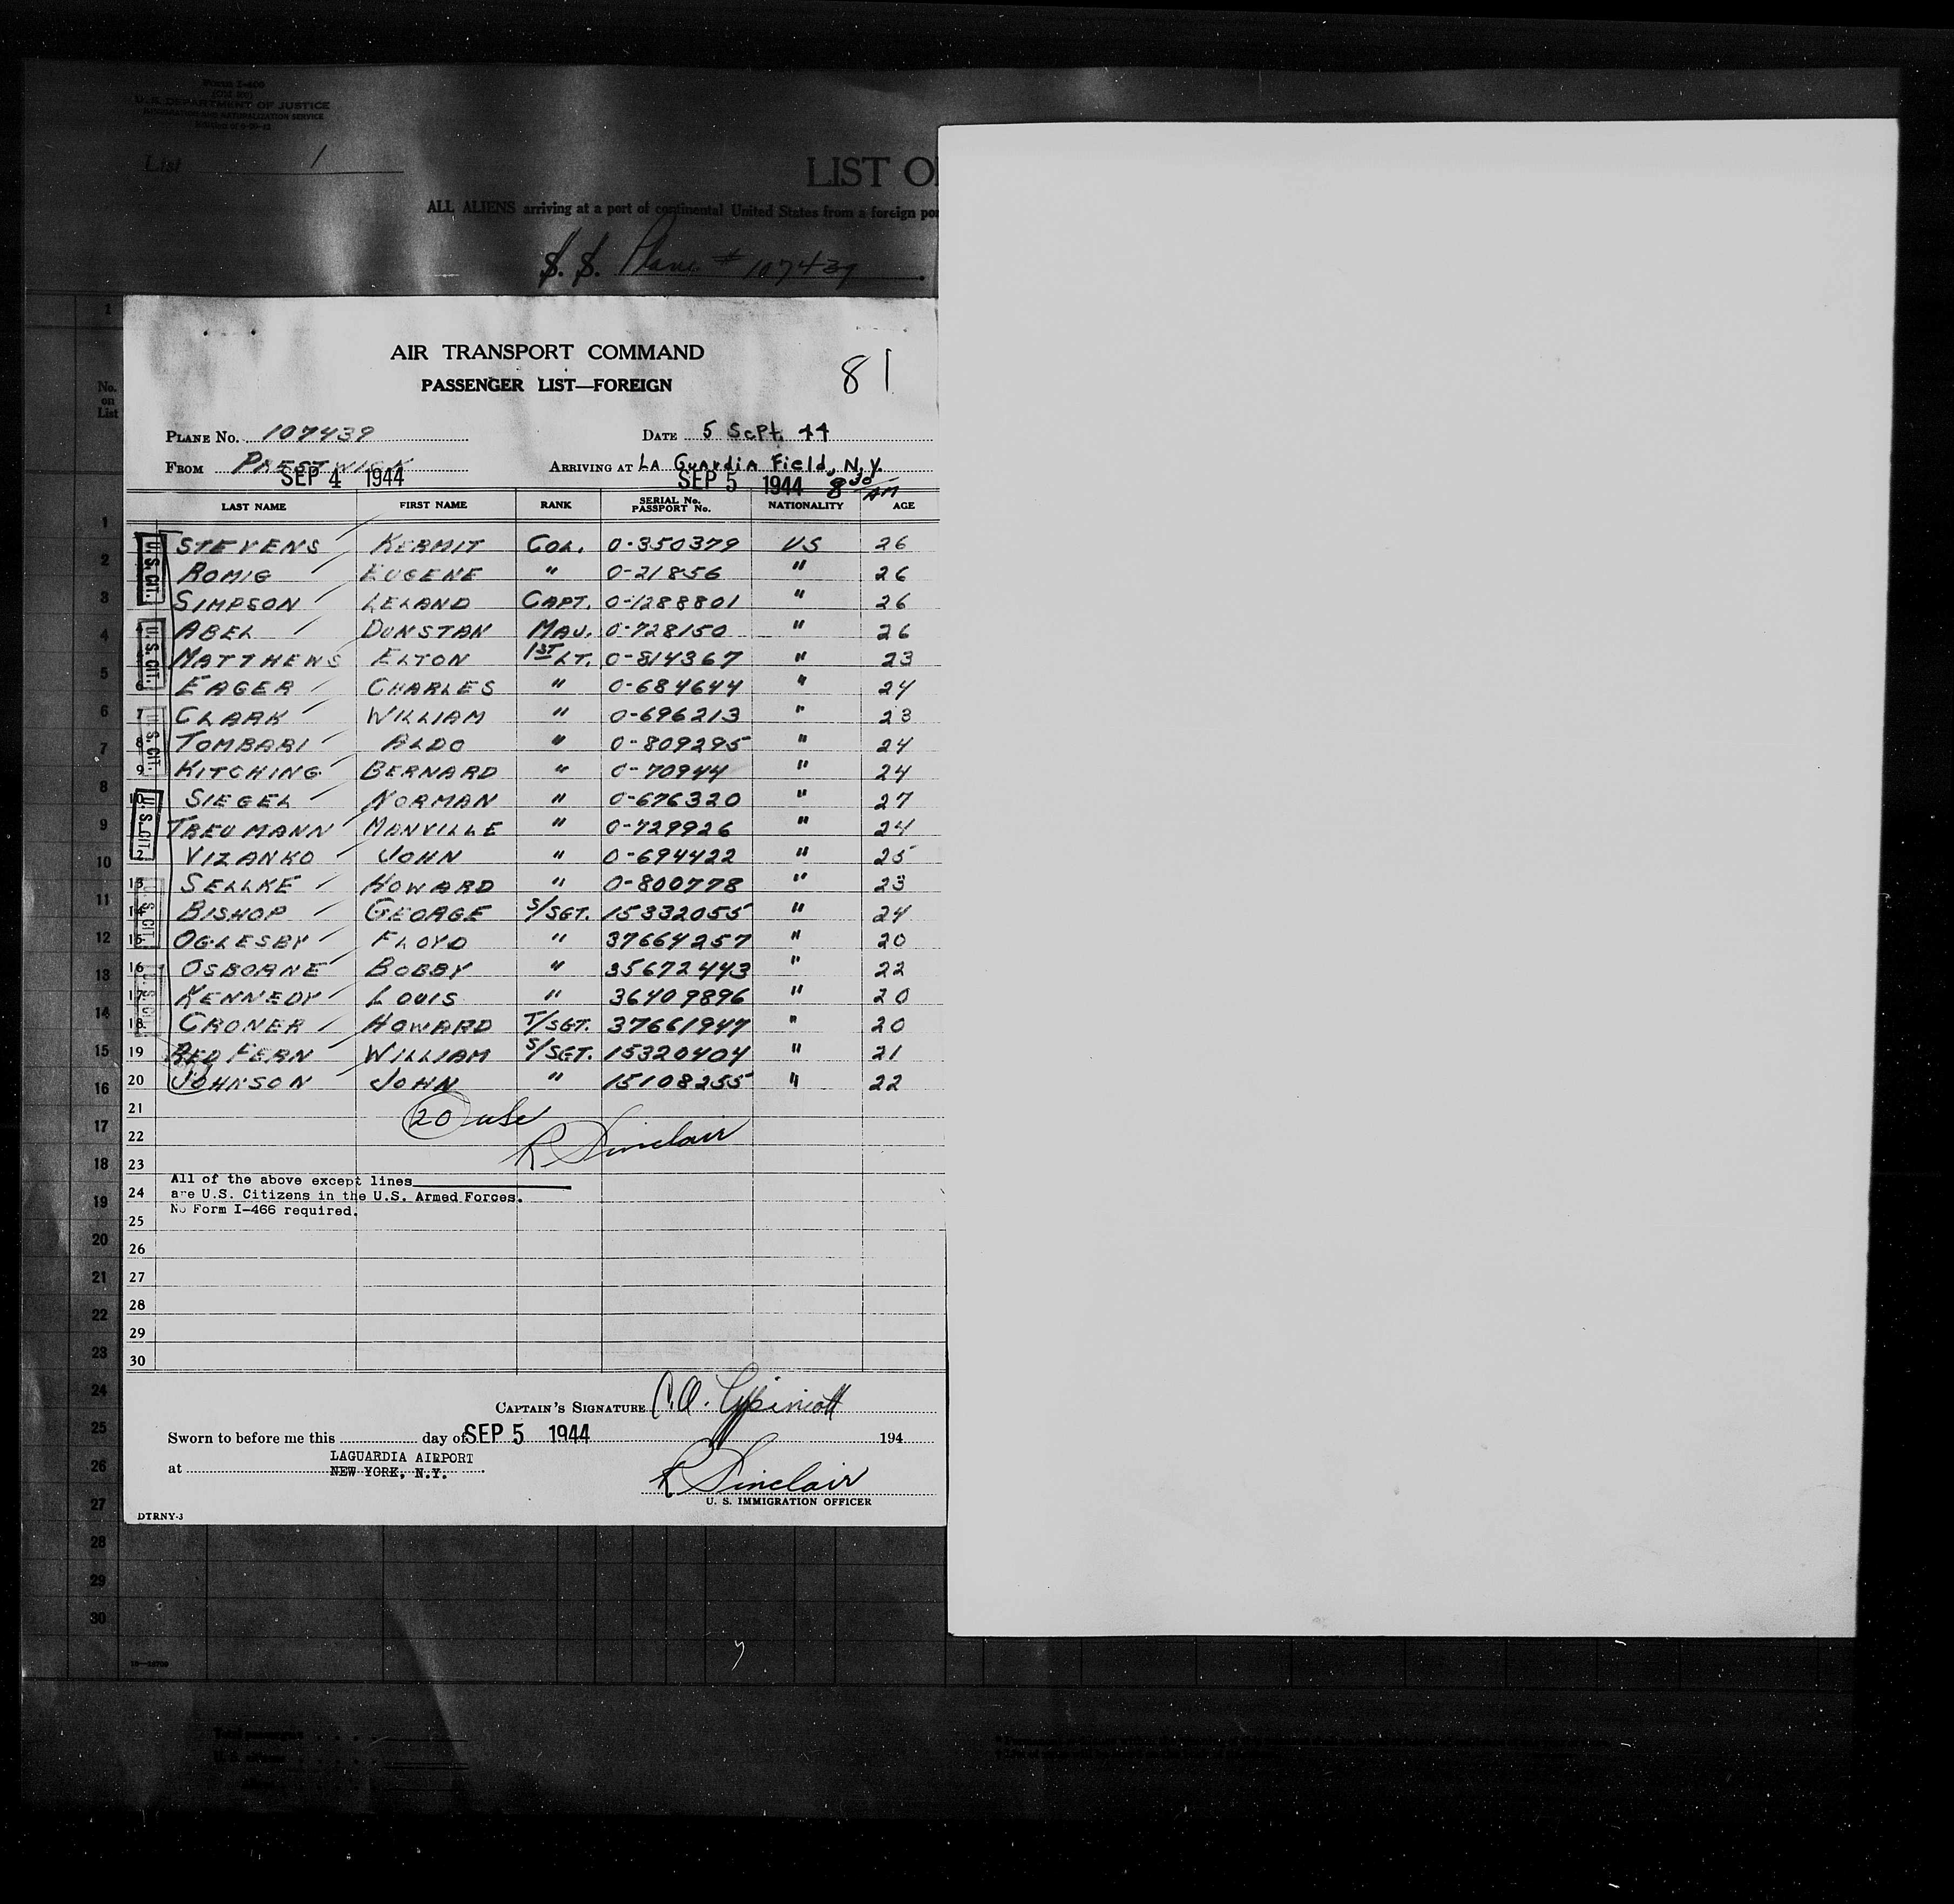 Form I-466
U. S. DEPARTMENT OF JUSTICE
IMMIGRATION AND NATURALIZATION SERVICE
List 1
LIST O
ALL ALIENS arriving at a port of continental United States from a foreign por
S. S. Plane # 107439
AIR TRANSPORT COMMAND
PASSENGER LIST—FOREIGN
81
PLANE No. 107439 DATE 5 Sept. 44
FROM PRESTWICK ARRIVING AT LA Guardia Field, N.Y.
SEP 4 1944 SEP 5 1944 8 30 AM
LAST NAME FIRST NAME RANK SERIAL No. PASSPORT No. NATIONALITY AGE
STEVENS KERMIT COL. 0-350379 US 26
ROMIG EUGENE " 0-21856 " 26
SIMPSON LELAND CAPT. 0-1288801 " 26
ABEL DUNSTAN MAJ. 0-728150 " 26
MATTHEWS ELTON 1ST LT. 0-814367 " 23
6 EAGER CHARLES " 0-684644 " 24
7 CLARK WILLIAM " 0-696213 " 23
8 TOMBARI ALDO " 0-809295 " 24
9 KITCHING BERNARD " 0-70944 " 24
10 SIEGEL NORMAN " 0-676320 " 27
TREUMANN MANVILLE " 0-729926 " 24
2 VIZANKO JOHN " 0-694422 " 25
13 SELLKE HOWARD " 0-800778 " 23
14 BISHOP GEORGE S/SGT. 15332055 " 24
15 OGLESBY FLOYD " 37664257 " 20
16 OSBORNE BOBBY " 35672443 " 22
17 KENNEDY LOUIS " 36409896 " 20
18 CRONER HOWARD T/SGT. 37661947 " 20
19 REDFERN WILLIAM S/SGT. 15320404 " 21
20 JOHNSON JOHN " 15108255 " 22
U.S. CIT.
U.S. CIT.
U.S. CIT.
U.S. CIT.
U.S. CIT.
U.S. CIT.
21 20 usc
22 R Sinclair
23
All of the above except lines
24 are U.S. Citizens in the U.S. Armed Forces.
No Form I-466 required.
25
26
27
28
29
30
CAPTAIN'S SIGNATURE
Sworn to before me this day of SEP 5 1944 194
at LAGUARDIA AIRPORT
NEW YORK, N.Y.
R Sinclair
U. S. IMMIGRATION OFFICER
DTRNY-3
No. on List
1
2
3
4
5
6
7
8
9
10
11
12
13
14
15
16
17
18
19
20
21
22
23
24
25
26
27
28
29
30